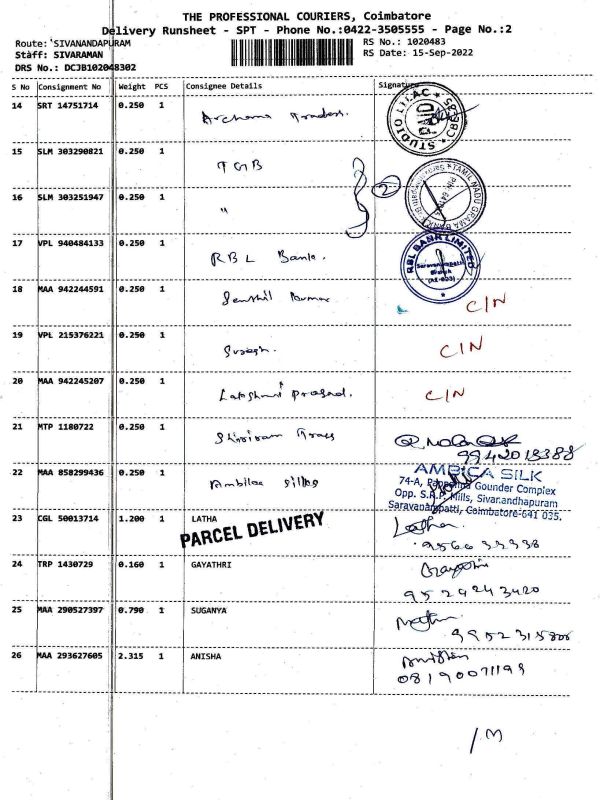 THE PROFESSIONAL COURIERS, Coimbatore
Delivery Runsheet - SPT - Phone No.:0422-3505555 - Page No.:2
Route: SIVANANDAPURAM RS No.: 1020483
Staff: SIVARAMAN RS Date: 15-Sep-2022
DRS No.: DCJB102048302
S No Consignment No Weight PCS Consignee Details Signature
14 SRT 14751714 0.250 1 Archana Traders.
STUDIO LILAC
15 SLM 303290821 0.250 1 TGB
16 SLM 303251947 0.250 1 "
2
TAMIL NADU GRAMA BANK
17 VPL 940484133 0.250 1 RBL Bank.
RBL BANK LIMITED
Saravanampatti
Branch
18 MAA 942244591 0.250 1 Senthil Kumar C/N
19 VPL 215376221 0.250 1 Suresh. C/N
20 MAA 942245207 0.250 1 Lakshmi Prasad. C/N
21 MTP 1180722 0.250 1 Shriram
9942013388
22 MAA 858299436 0.250 1 Ambika Silks
AMBICA SILK
74-A, Gounder Complex
Opp. S.R.P. Mills, Sivanandhapuram
Saravanampatti, Coimbatore-641 035.
23 CGL 50013714 1.200 1 LATHA Latha
PARCEL DELIVERY
24 TRP 1430729 0.160 1 GAYATHRI Gayathri
9529243420
25 MAA 290527397 0.790 1 SUGANYA
26 MAA 293627605 2.315 1 ANISHA
08190071199
/M